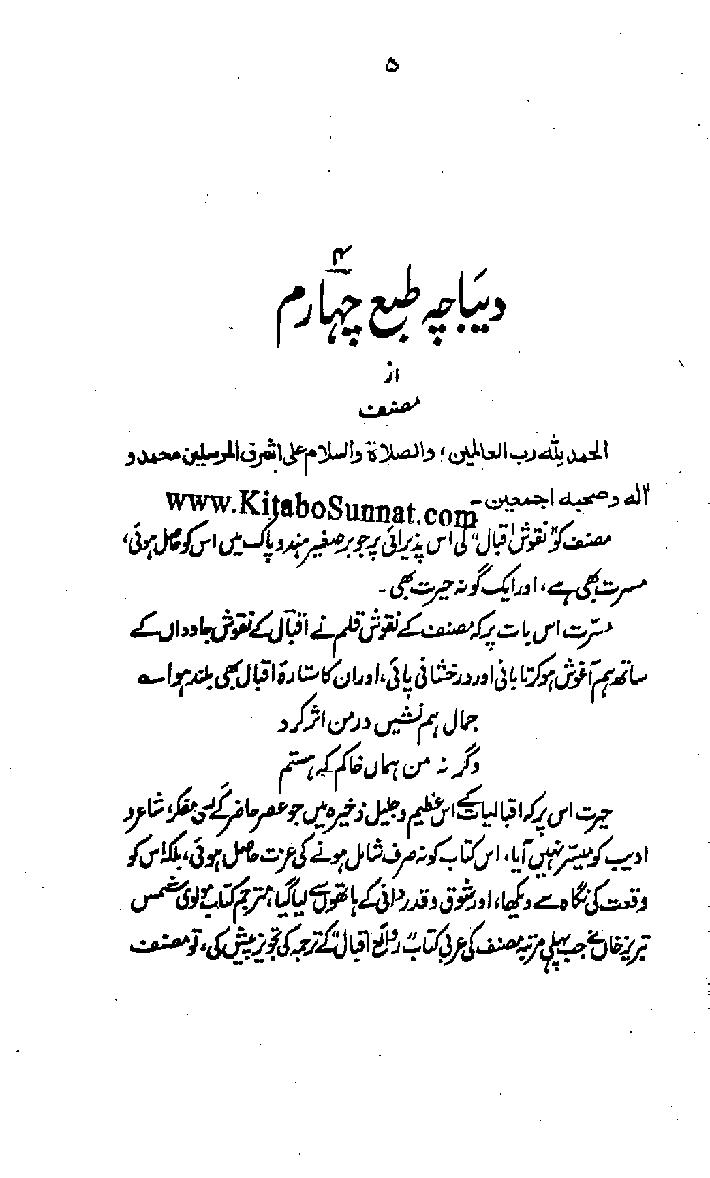 ۵
۴
دیباچہ طبع چہارم
از
مصنف
الحمد للہ رب العالمین، والصلاۃ والسلام علی اشرف المرسلین محمد و
آلہ وصحبہ اجمعین۔
www.KitaboSunnat.com
مصنف کو "نقوش اقبال" کی اس پذیرائی پر جو برصغیر ہند و پاک میں اس کو حاصل ہوئی،
مسرت بھی ہے، اور ایک گونہ حیرت بھی۔
مسرّت اس بات پر کہ مصنف کے نقوش قلم نے اقبالؔ کے نقوش جاوداں کے
ساتھ ہم آغوش ہو کر تابانی اور درخشانی پائی، اور ان کا ستارۂ اقبال بھی بلند ہوا ؎
جمال ہم نشیں در من اثر کرد
وگرنہ من ہماں خاکم کہ ہستم
حیرت اس پر کہ اقبالیات کے اس عظیم و جلیل ذخیرہ میں جو عصر حاضر کے کسی مفکر، شاعر و
ادیب کو میسّر نہیں آیا، اس کتاب کو نہ صرف شامل ہونے کی عزت حاصل ہوئی، بلکہ اس کو
وقعت کی نگاہ سے دیکھا، اور شوق و قدردانی کے ہاتھوں سے لیا گیا، مترجم کتاب مولوی شمس
تبریز خاں نے جب پہلی مرتبہ مصنف کی عربی کتاب "روائع اقبال" کے ترجمہ کی تجویز پیش کی، تو مصنف